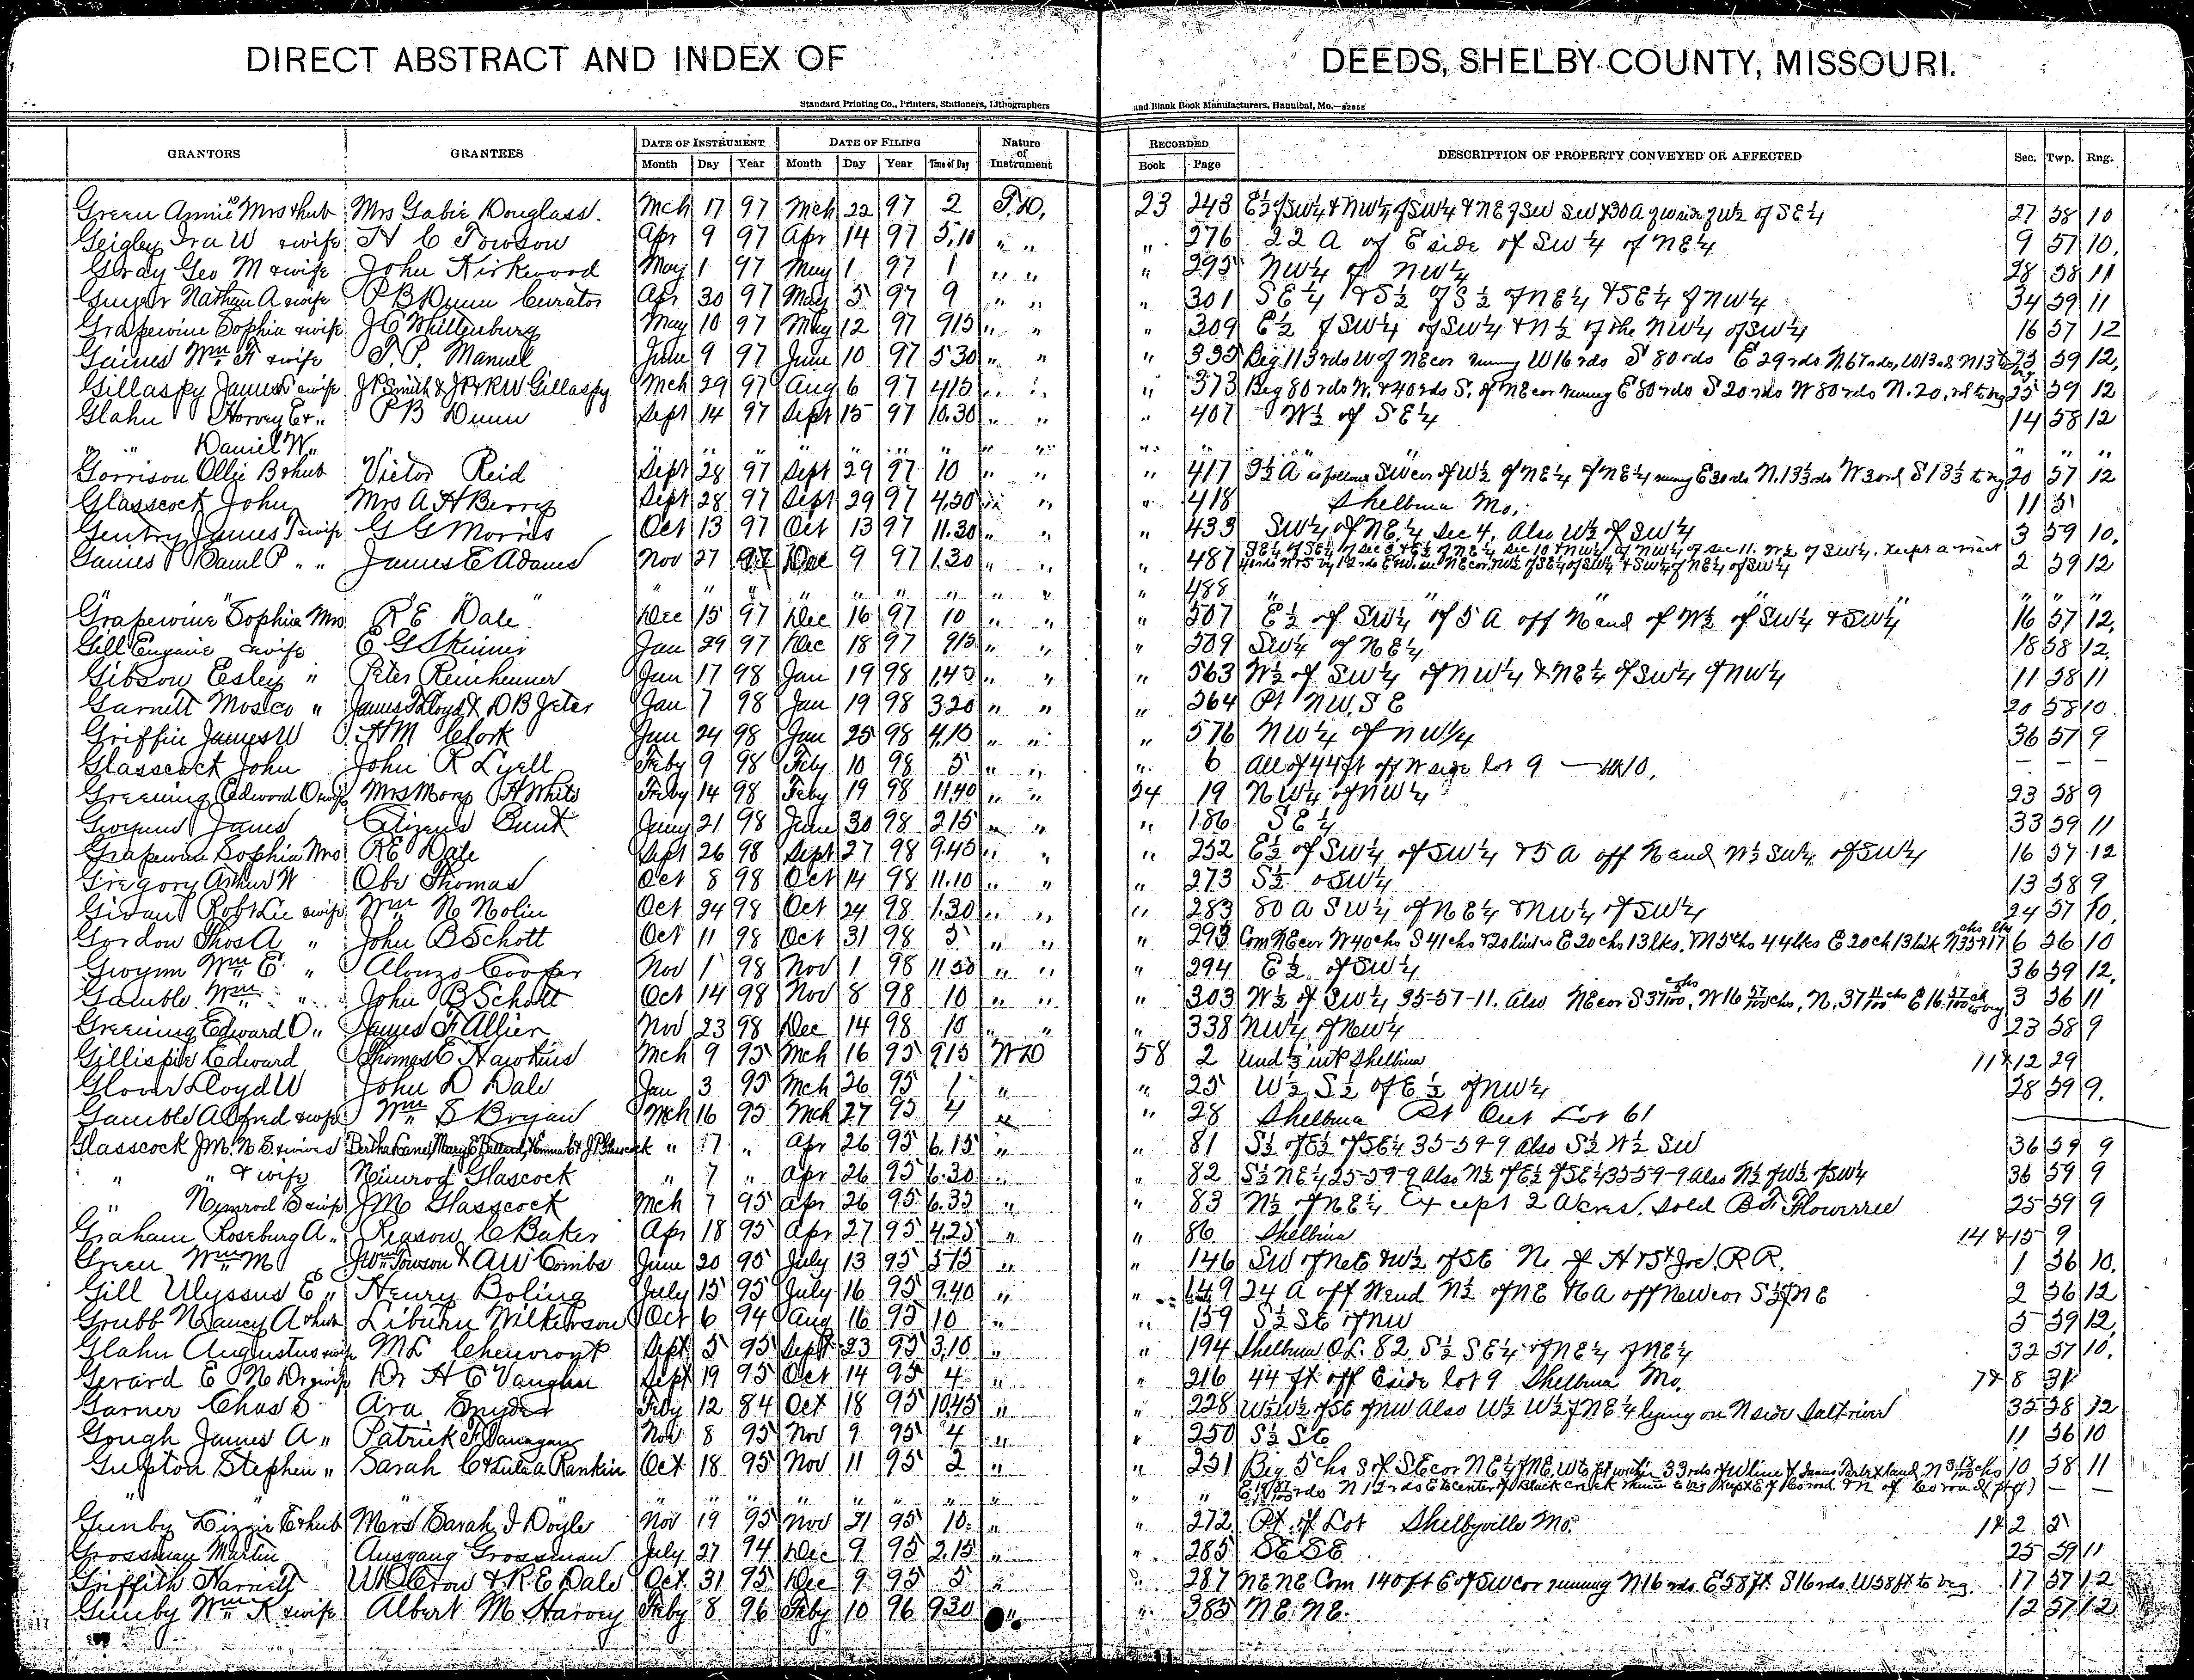 DIRECT ABSTRACT AND INDEX OF DEEDS, SHELBY COUNTY, MISSOURI.
Standard Printing Co., Printers, Stationers, Lithographers and Blank Book Manufacturers, Hannibal, Mo.
GRANTORS GRANTEES DATE OF INSTRUMENT DATE OF FILING Nature of Instrument RECORDED DESCRIPTION OF PROPERTY CONVEYED OR AFFECTED Sec. Twp. Rng.
Month Day Year Month Day Year Time of Day Book Page
Green Annie Mrs & hub Mrs Gabie Douglass. Mch 17 97 Mch 22 97 2 T.D. 23 243 27 58 10
Geigley Ira W & wife H C Towson Apr 9 97 Apr 14 97 5.10 " " " 276 22 A of E side of SW¼ of NE¼ 9 57 10.
Gray Geo M & wife John Kirkwood May 1 97 May 1 97 1 " " " 295 NW¼ of NW¼ 28 58 11
Nathan A & wife P B Dunn Curator Apr 30 97 May 5 97 9 " " " 301 SE¼ & S½ of S½ of NE¼ & SE¼ of NW¼ 34 59 11
Grapewine Sophia & wife J C Whittenburg May 10 97 May 12 97 915 " " " 309 E½ of SW¼ of SW¼ & N½ of the NW¼ of SW¼ 16 57 12
Gaines Wm F & wife T. P. Manuel June 9 97 June 10 97 530 " " " 335 Beg 113 rds W of NE cor running W 16 rds S 80 rds E 29 rds N. 67 rds, W 13 rds N 13 59 12.
Gillaspy James & wife J P Smith & J P & R W Gillaspy Mch 29 97 Aug 6 97 415 " " " 373 Beg 80 rds W. & 40 rds S. of NE cor running E 80 rds S 20 rds W 80 rds N. 20. rd to beg 25 59 12
Glahn Harvey E & " P B Dunn Sept 14 97 Sept 15 97 10.30 " " " 407 W½ of SE¼ 14 58 12
" " Daniel W. " " " " " " " " " " " " " " "
Gorrison Ollie B & hub Victor Reid Sept 28 97 Sept 29 97 10 " " " 417 as follows SW cor of W½ of NE¼ of NE¼ 20 57 12
Glasscock John Mrs A H Berry Sept 28 97 Sept 29 97 4.30 " " " 418 Shelbina Mo. 11 31
Gentry James T & wife G G Morris Oct 13 97 Oct 13 97 11.30 " " " 433 SW¼ of NE¼ Sec 4. Also W½ of SW¼ 3 59 10.
Gaines Paul P " " James E Adams Nov 27 97 Dec 9 97 1.30 " " " 487 2 59 12
" " " " " " " " " 488 " " "
Grapewine Sophia Mrs R E Dale Dec 15 97 Dec 16 97 10 " " " 507 E½ of SW¼ of 5 A off N end of W½ of SW¼ & SW¼ 16 57 12.
Gill Eugenie & wife E G Skinner Jan 29 97 Dec 18 97 915 " " " 509 SW¼ of NE¼ 18 58 12.
Gibson Esley " Peter Reinheimer Jan 17 98 Jan 19 98 1.45 " " " 563 W½ of SW¼ of NW¼ & NE¼ of SW¼ of NW¼ 11 58 11
Garnett Mosco " James T Lloyd & D B Jeter Jan 7 98 Jan 19 98 3.20 " " " 564 Pt NW, SE 20 58 10.
Griffin James W H M Clark Jan 24 98 Jan 25 98 4.15 " " " 576 NW¼ of NW¼ 36 57 9
Glasscock John John R Lyell Feby 9 98 Feby 10 98 5 " " " 6 All of 44 ft off W side lot 9 — — —
Greening Edward O & wife Mrs Mary H White Feby 14 98 Feby 19 98 11.40 " " 24 19 NW¼ of NW¼ 23 58 9
James Citizens Bank 21 98 June 30 98 2.15 " " " 186 SE¼ 33 59 11
Grapewine Sophia Mrs R E Dale Sept 26 98 Sept 27 98 9.45 " " " 252 E½ of SW¼ of SW¼ & 5 A off N end W½ SW¼ of SW¼ 16 57 12
Gregory Arthur W Obe Thomas Oct 8 98 Oct 14 98 11.10 " " " 273 S½ SW¼ 13 58 9
Givan Robt Lee & wife Wm N Nolin Oct 24 98 Oct 24 98 1.30 " " " 283 80 A SW¼ of NE¼ & NW¼ of SW¼ 24 57 10.
Gordon Thos A " John B Schott Oct 11 98 Oct 31 98 5 " " " 293 Com NE cor W 40 chs S 41 chs 6 56 10
Gwynn Wm E " Alonzo Cooper Nov 1 98 Nov 1 98 11 50 " " " 294 E½ of SW¼ 36 59 12.
Gamble Wm " " John B Schott Oct 14 98 Nov 8 98 10 " " " 303 W½ of SW¼ 35-57-11. Also NE cor 3 56 11
Greening Edward O " James F Allier Nov 23 98 Dec 14 98 10 " " " 338 NW¼ of NW¼ 23 58 9
Gillispie Edward Thomas E Hawkins Mch 9 95 Mch 16 95 915 WD 58 2 Und ⅓ int Shelbina 11 & 12 29
Glover Lloyd W John D Dale Jan 3 95 Mch 26 95 1 " " 25 W½ S½ of E½ of NW¼ 28 59 9.
Gamble Alfred & wife Wm S Bryan Mch 16 95 Mch 27 95 4 " " 28 Shelbina Pt Out Lot 61
Glasscock J M. N S & wives Bertha Mary E Emma & J P Glasscock " 17 " Apr 26 95 6.15 " " 81 S½ of E½ of SE¼ 35-59-9 Also S½ W½ SW 36 59 9
" " & wife Nimrod Glascock " 7 " Apr 26 95 6.30 " " 82 S½ NE¼ 25-59-9 Also N½ of E½ of SE¼ 35-59-9 Also N½ of W½ of SW¼ 36 59 9
" Nimrod S & wife J M Glasscock Mch 7 95 Apr 26 95 6.35 " " 83 N½ of NE¼ Except 2 Acres. Sold B F Flowerree 25 59 9
Graham Roseburg A " Reason C Baker Apr 18 95 Apr 27 95 4.25 " " 86 Shelbina 14 & 15 9
Green Wm M Jno Towson & A W Combs June 20 95 July 13 95 " " 146 SW of NE & W½ of SE N. of H & St Joe. R R. 1 56 10.
Gill Ulyssus E " Henry Boling July 15 95 July 16 95 9.40 " " 149 24 A off W end N½ of NE & 6 A off NW cor S½ of NE 2 56 12
Grubb Nancy A & hub Liburn Wilkerson Oct 6 94 Aug 16 95 10 " " 159 S½ SE of NW 5 59 12.
Glahn Augustus & wife M L Chenvront Sept 5 95 Sept 23 95 3.10 " " 194 Shelbina O.L. 82. S½ SE¼ of NE¼ of NE¼ 32 57 10.
Gerard E N Dr & wife Dr H E Vaughn Sept 19 95 Oct 14 95 4 " " 216 44 ft off E side lot 9 Shelbina Mo. 7 & 8 31
Garner Chas S Ara Snyder Feby 12 84 Oct 18 95 1045 " " 228 W½ W½ of SE of NW Also W½ W½ of NE¼ lying on N side Salt river 35 58 12
Gough James A " Patrick F Nov 8 95 Nov 9 95 4 " " 250 S½ SE 11 56 10
Gupton Stephen " Sarah C & Lula A Rankin Oct 18 95 Nov 11 95 2 " " 251 Beg 5 chs S of SE cor NE¼ of NE 10 58 11
" " " " " " " " " " — —
Gunby Lizzie E & hub Mrs Sarah J Doyle Nov 19 95 Nov 21 95 10. " " 272 Pt of Lot Shelbyville Mo. 1 & 2 5
Grossman Martin Ausgang Grossman July 27 94 Dec 9 95 2.15 " " 285 SE SE 25 59 11
Griffith Harriet W O Crow & R. E Dale Oct 31 95 Dec 9 95 5 " " 287 NE NE Com 140 ft E of SW cor running N 16 rds. E 58 ft. S 16 rds. W 58 ft to beg. 17 57 12
Gunby Wm K & wife Albert M Harvey Feby 8 96 Feby 10 96 930 " " 385 NE. NE. 12 57 12